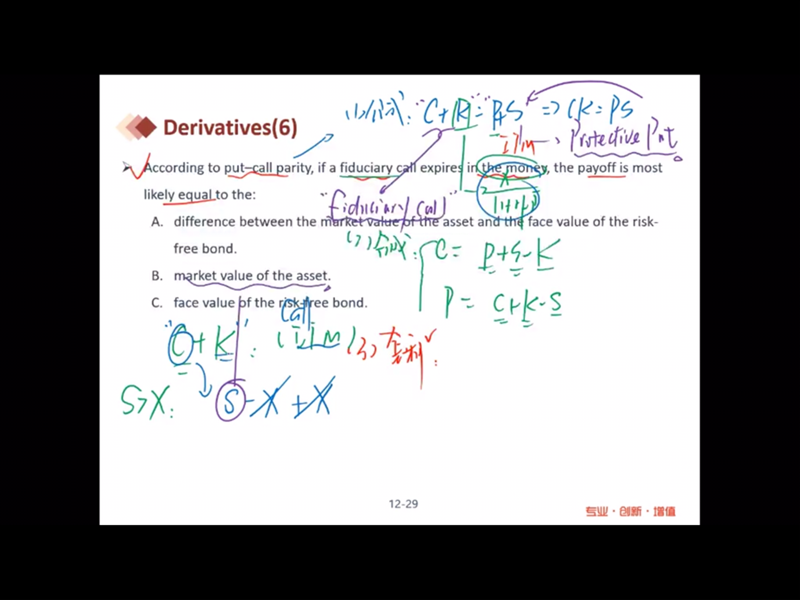 (1) 公式: "C+K"="P+S" => CK=PS
Derivatives(6)
ITM → Protective Put
According to put–call parity, if a fiduciary call expires in the money, the payoff is most
likely equal to the:
"fiduciary call"
A. difference between the market value of the asset and the face value of the risk-
free bond.
(2) 合成: C= P+S-K
B. market value of the asset.
C. face value of the risk-free bond.
P= C+K-S
Call
"C+K": ITM (3) 套利:
S>X: S-X+X
12-29
专业·创新·增值